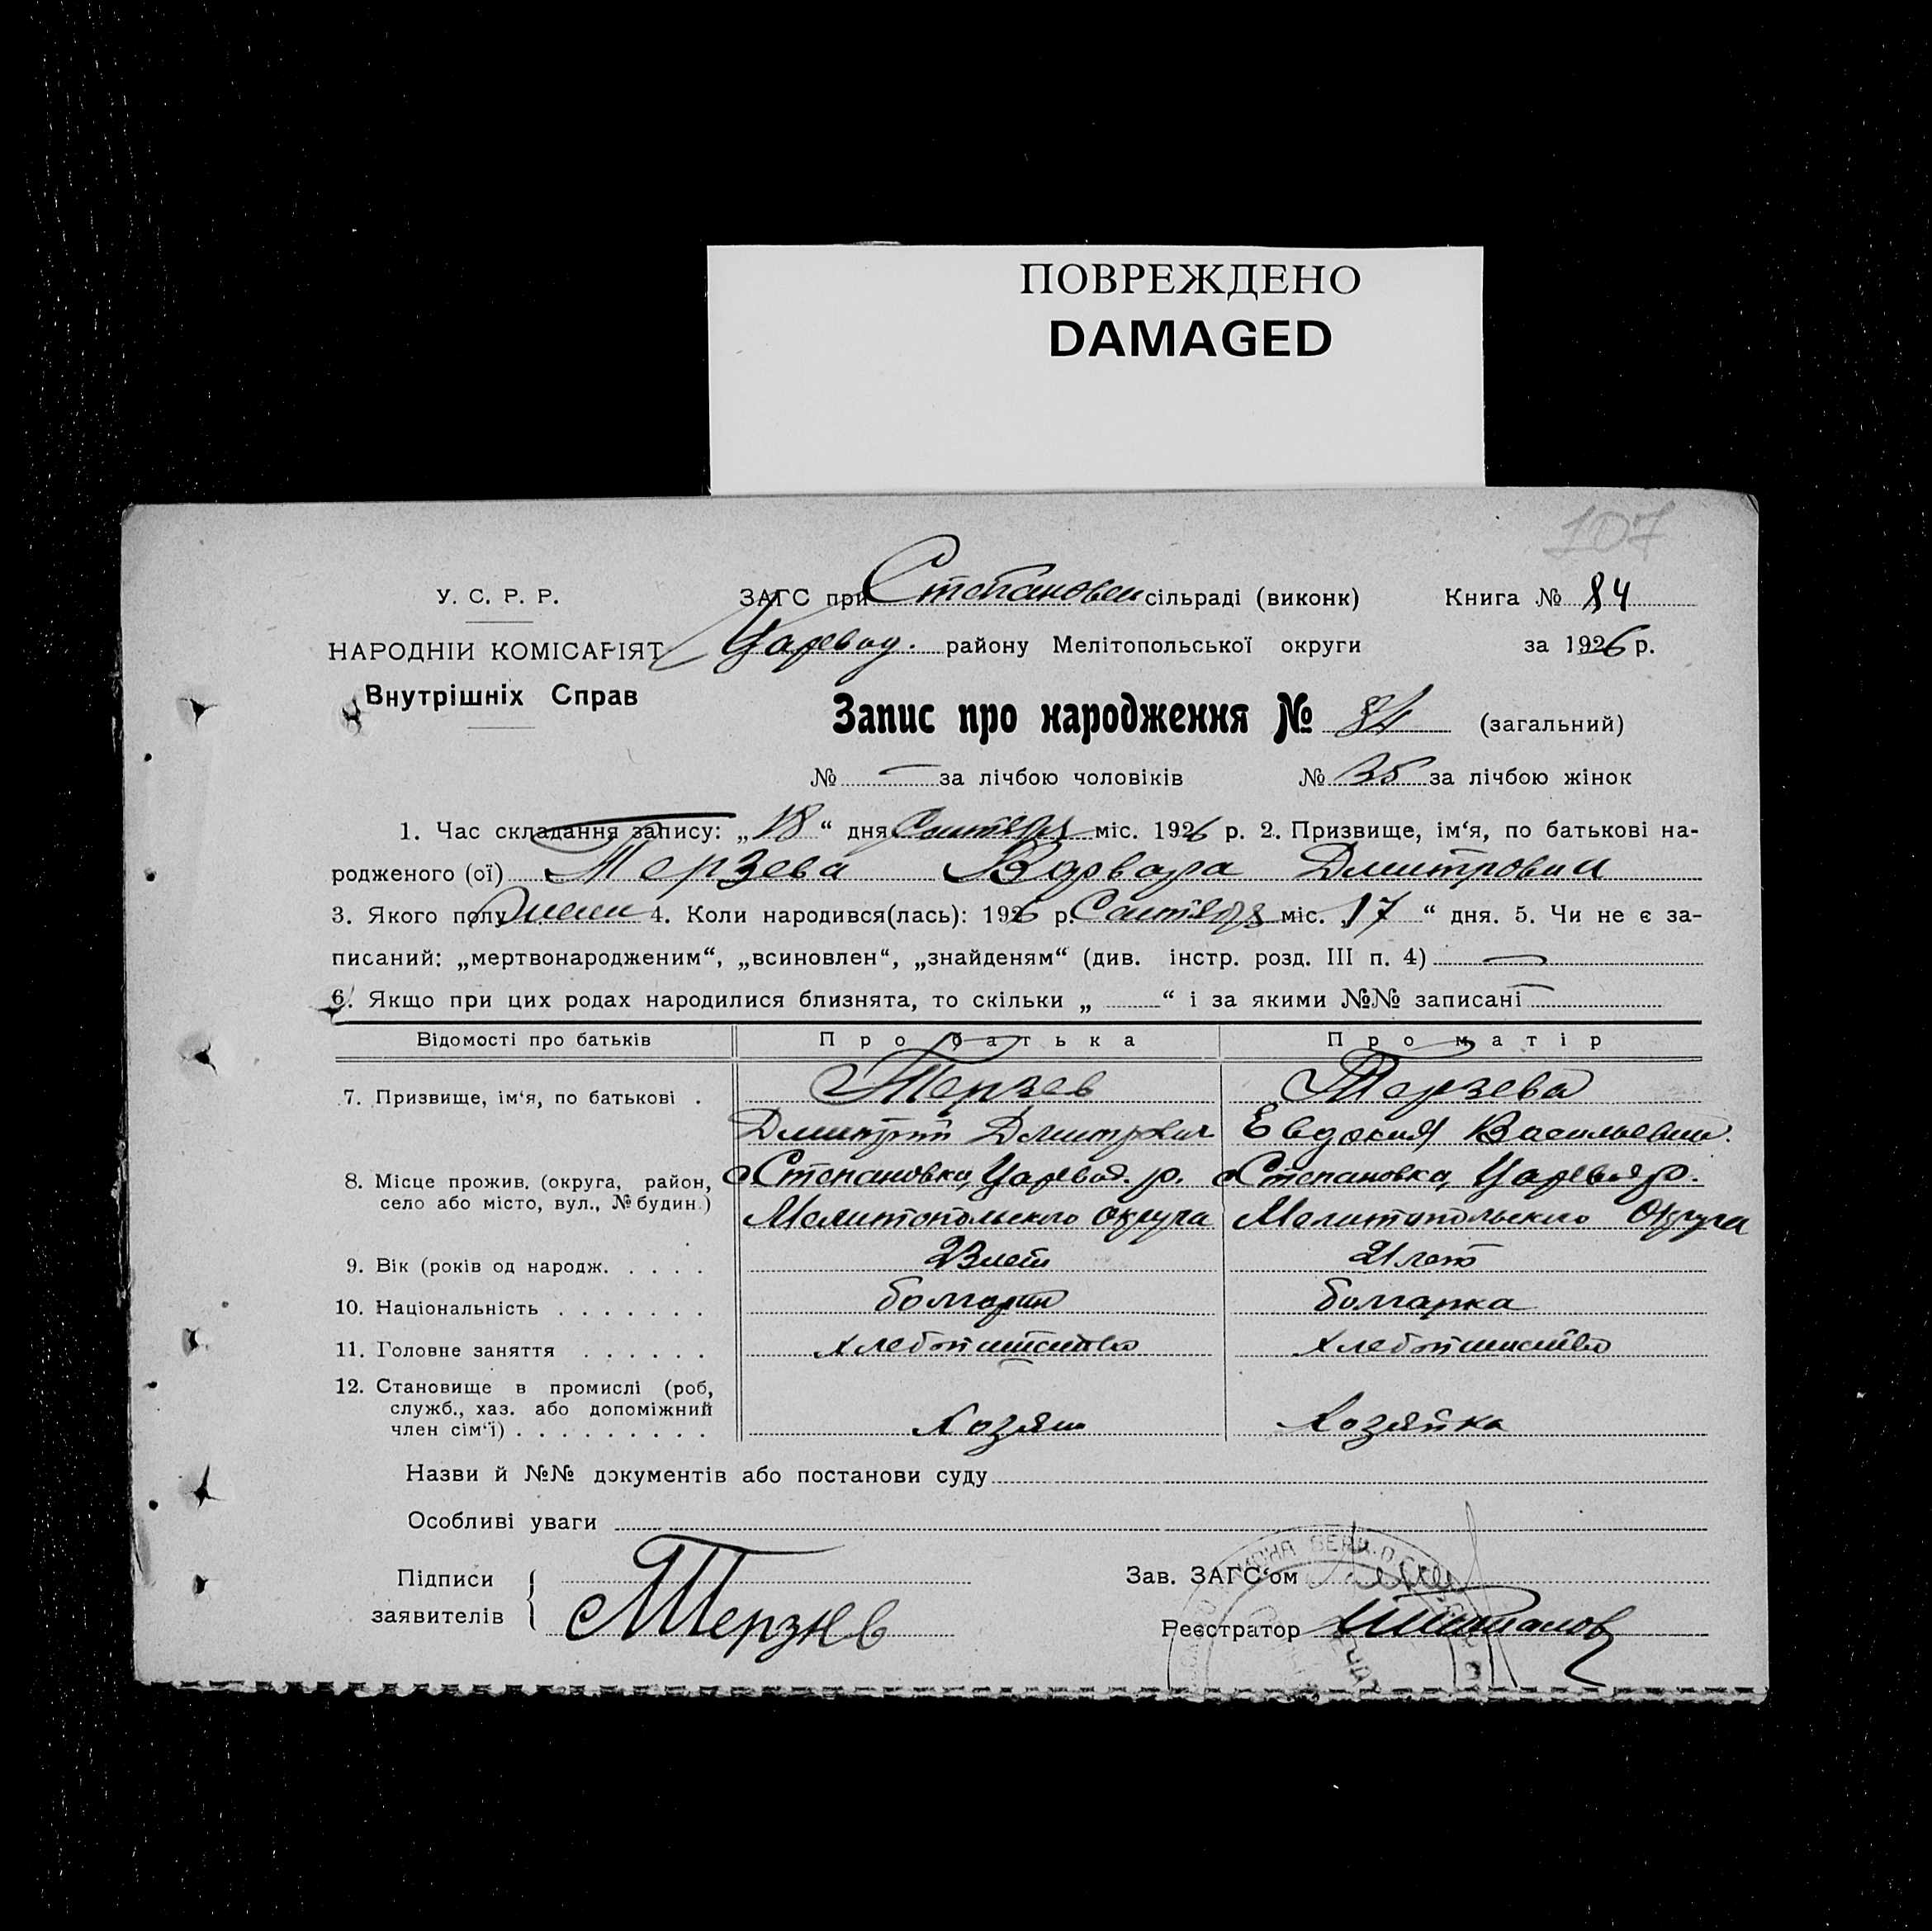 ПОВРЕЖДЕНО
DAMAGED
107
У. С. Р. Р.
ЗАГС при Степановск сільраді (виконк)
Книга № 84
НАРОДНІЙ КОМІСАРІЯТ
Царевод. району Мелітопольської округи
за 1926 р.
Внутрішніх Справ
Запис про народження № 84 (загальний)
№ — за лічбою чоловіків № 35 за лічбою жінок
1. Час складання запису: „18“ дня Сентября міс. 1926 р. 2. Призвище, ім‘я, по батькові на-
родженого (ої) Терзева Варвара Дмитровна
3. Якого полу женск 4. Коли народився(лась): 1926 р. Сентября міс. 17 “ дня. 5. Чи не є за-
писаний: „мертвонародженим“, „всиновлен“, „знайденям“ (див. інстр. розд. III п. 4) —
6. Якщо при цих родах народилися близнята, то скільки „ “ і за якими №№ записані —
Відомості про батьків
Про батька
Про матір
7. Призвище, ім‘я, по батькові .
Терзев
Терзева
Дмитрий Дмитрович
Евдокия Васильевна.
8. Місце прожив. (округа, район,
село або місто, вул., № будин.)
с Степановка, Царевод. р.
с Степановка, Царевод р.
Мелитопольского округа
Мелитопольского Округа
9. Вік (років од народж. . . . .
23 лет
21 лет
10. Національність . . . . . . .
болгарин
болгарка
11. Головне заняття . . . . . .
хлебопашество
хлебопашество
12. Становище в промислі (роб,
служб., хаз. або допоміжний
член сім‘ї) . . . . . . . . .
Хозяин
Хозяйка
Назви й №№ документів або постанови суду
Особливі уваги
Підписи
заявителів
Терзев
Зав. ЗАГС‘ом
Реєстратор